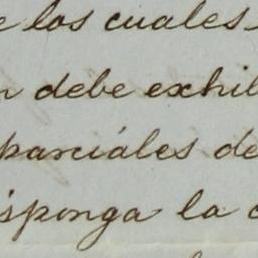 e los cuales
n debe exhi
parciales de
isponga la